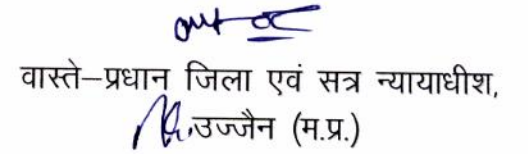 वास्ते–प्रधान जिला एवं सत्र न्यायाधीश,
उज्जैन (म.प्र.)